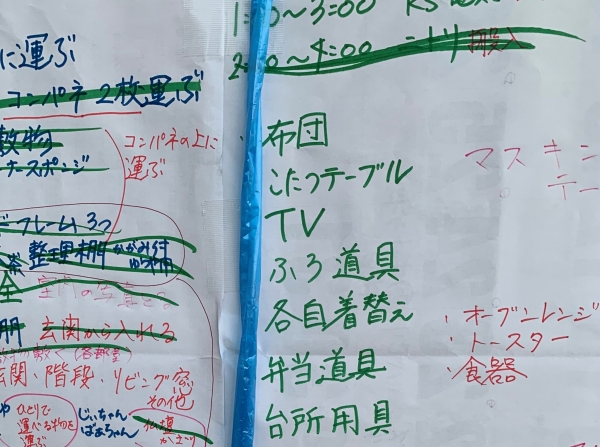 に運ぶ
コンパネ 2枚運ぶ
敷物
ナースポンジ
コンパネの上に
運ぶ
フレーム 3つ
整理棚 かがみ付
玄関から入れる
玄関、階段、リビング窓
その他
ひとりで
運べる物を
運ぶ
じいちゃん
ばあちゃん
1:00〜3:00
2:00〜4:00 ニトリ搬入
・布団
こたつテーブル
TV
ふろ道具
各自着替え
弁当道具
台所用具
マスキン
テー
・オーブンレンジ
・トースター
・食器